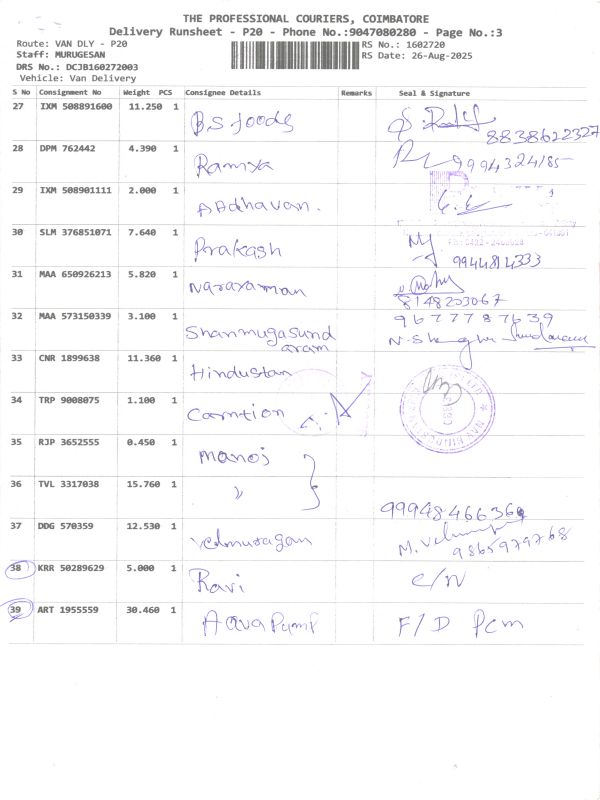 THE PROFESSIONAL COURIERS, COIMBATORE
Delivery Runsheet - P20 - Phone No.:9047080280 - Page No.:3
Route: VAN DLY - P20
RS No.: 1602720
Staff: MURUGESAN
RS Date: 26-Aug-2025
DRS No.: DCJB160272003
Vehicle: Van Delivery
S No Consignment No Weight PCS Consignee Details Remarks Seal & Signature
27 IXM 508891600 11.250 1 B.S foods
8838622327
28 DPM 762442 4.390 1 Ramya 9994324185
29 IXM 508901111 2.000 1 AAdhavan.
30 SLM 376851071 7.640 1 Prakash
9944814333
31 MAA 650926213 5.820 1 Narayaman
8148203067
32 MAA 573150339 3.100 1 Shanmugasund
aram
9677787639
33 CNR 1899638 11.360 1 Hindustan
34 TRP 9008075 1.100 1 Carntion
35 RJP 3652555 0.450 1 Manoj
36 TVL 3317038 15.760 1 "
9994846636
37 DDG 570359 12.530 1 Velmuragan
9865979768
38 KRR 50289629 5.000 1 Ravi C/N
39 ART 1955559 30.460 1 Aqva Pump F/D Pcm